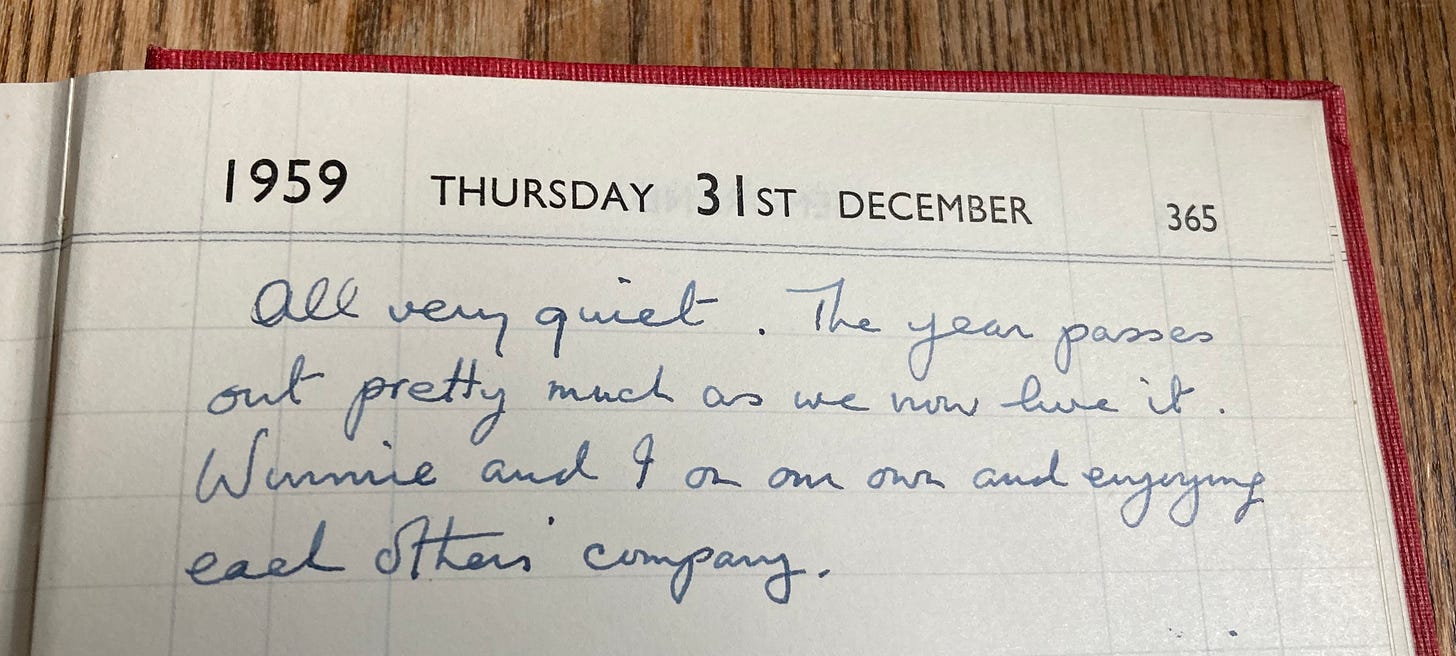 1959 THURSDAY 31ST DECEMBER 365
All very quiet. The year passes
out pretty much as we now live it.
Winnie and I on our own and enjoying
each others' company.